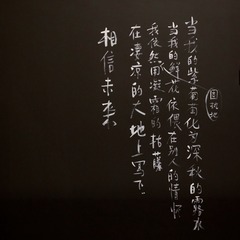 当我的紫葡萄化为深秋的露水
当我的鲜花依偎在别人的情怀
固执地
我依然用凝霜的枯藤
在凄凉的大地上写下:
相信未来